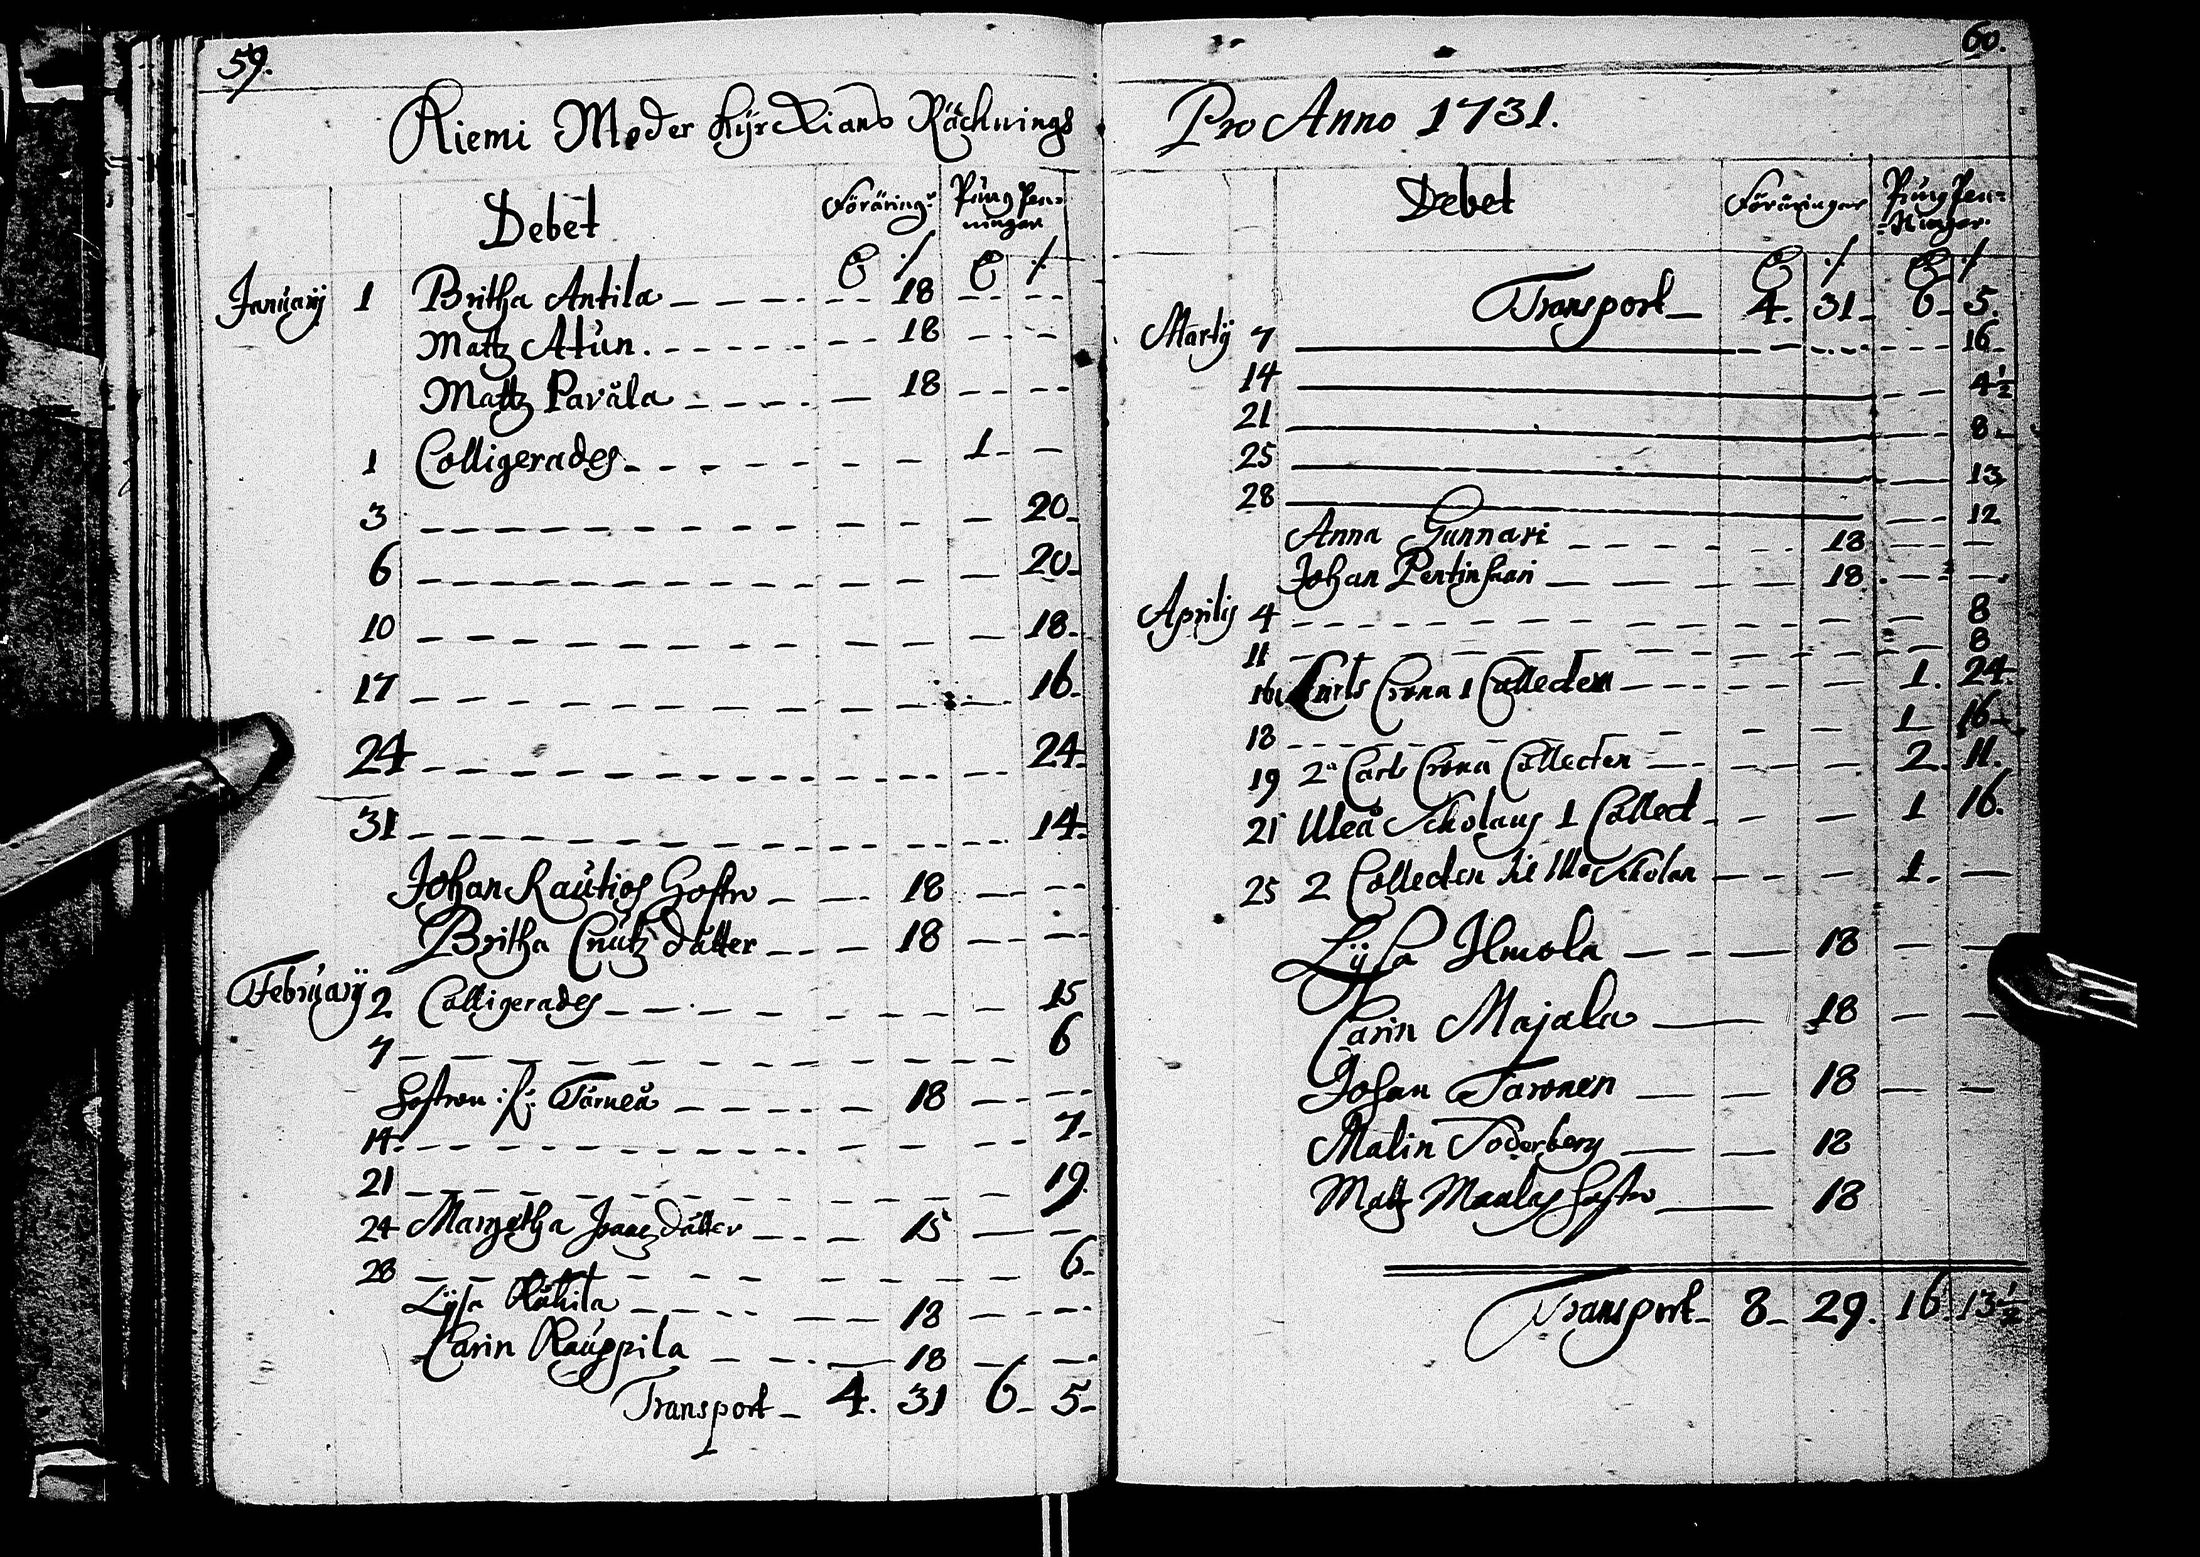 59.
Kiemi Moder Kÿrckians Räcknings
Debet Föräring: Pung Pen=
ningar
Januarij 1 Britha Antila 18
Mattz Atun. 18
Mattz Pavåla 18
1 Colligerades 1
3 20
6 20
10 18
17 16
24 24
31 14
Johan Rautios Hostro 18
Britha Cnutz dåtter 18
Februarij 2 Colligerades 15
7 6
Hostron Tårneå 18
14 7
21 19
24 Margetha Isaacz dåtter 15
28 6
Lÿsa 18
Carin Kauppila 18
Transport 4. 31 6 5
60.
Pro Anno 1731.
Debet Föräringar Pung Pen=
=ningar
Transport 4. 31 6 5.
Martij 7 16
14 4½
21 8
25 13
28 12
Anna Gunnari 18
Johan 18
Aprilis 4 8
11 8
16 Carls Crona 1 Collecten 1. 24
18 1 16
19 2a Carls Crona Collecten 2. 11.
21 Uleå Scholans 1 Collect 1 16.
25 2 Collecten til Ulo Scholan 1.
Lÿsa Ilmola 18
Carin Majala 18
Johan Taronen 18
Malin Söderberg 18
Mattz Maalas Hostro 18
Transport 8 29. 16. 13½